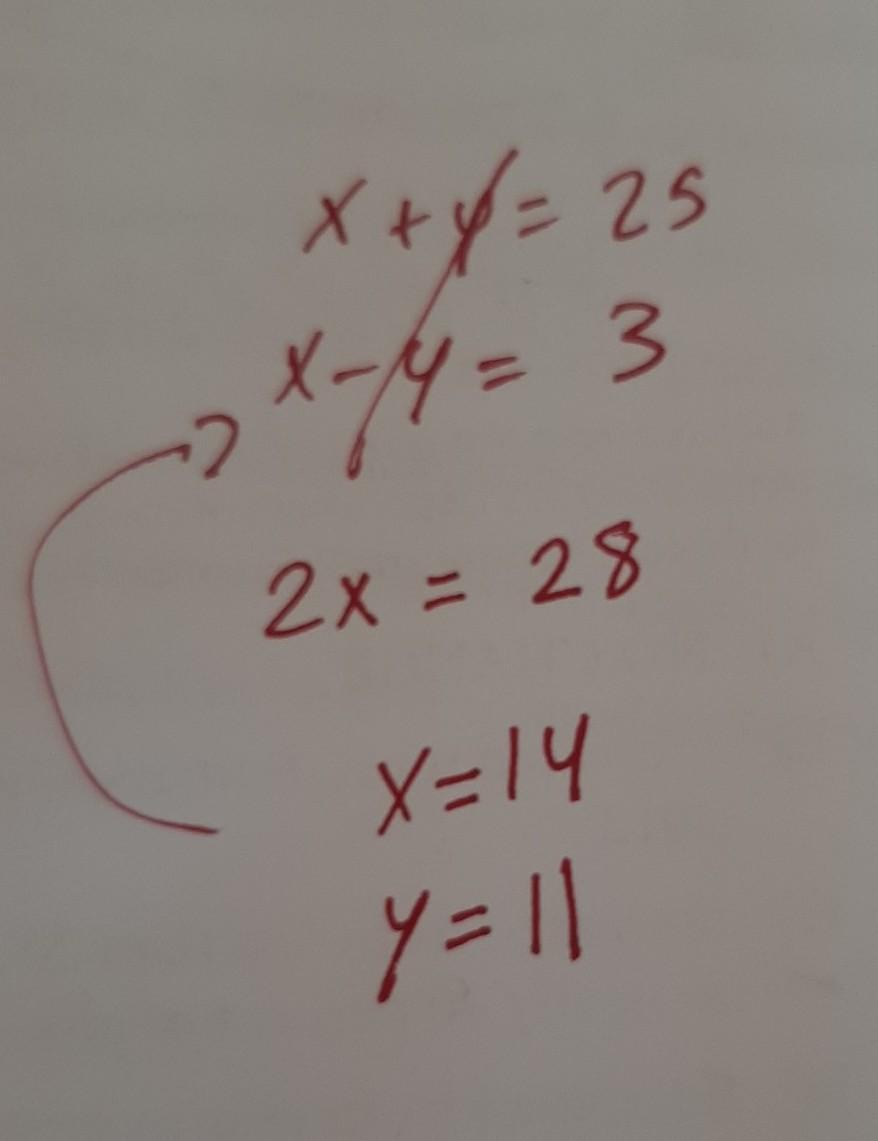 x + y = 25
x - y = 3
2x = 28
x = 14
y = 11